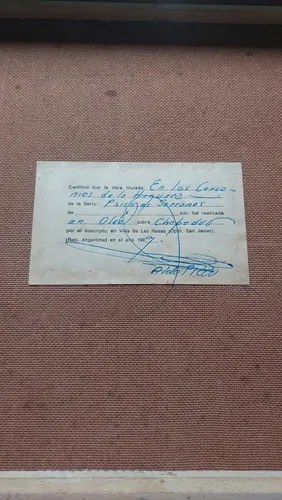 Certifico que la obra titulada En Las Cerca-
nias de la Hoguera
de la Serie: Paisajes Serranos
de cm. fué realizada
en Oleo sobre Chapadur
por el suscripto, en Villa de Las Rosas (Dpto. San Javier)
(Rep. Argentina) en el año 196
Aldo